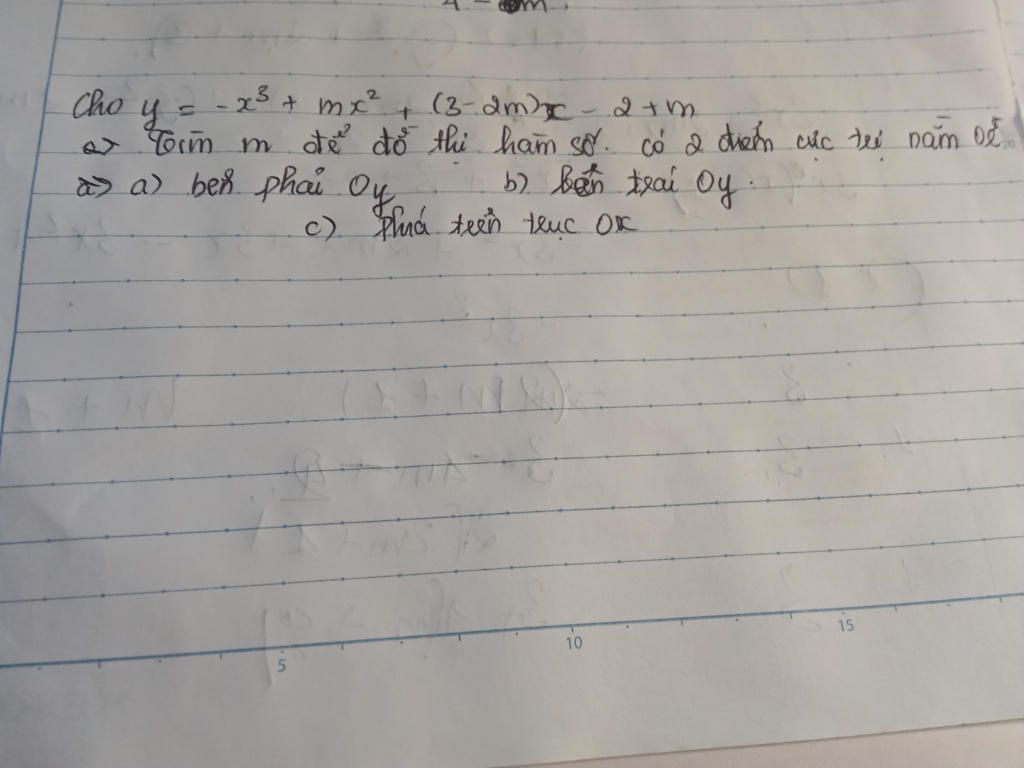 Cho y = -x³ + mx² + (3-2m)x - 2 + m
Tìm m để đồ thị hàm số. có 2 điểm cực trị nằm
a) bên phải Oy b) bên trái Oy.
c) phía trên trục Ox
5 10 15